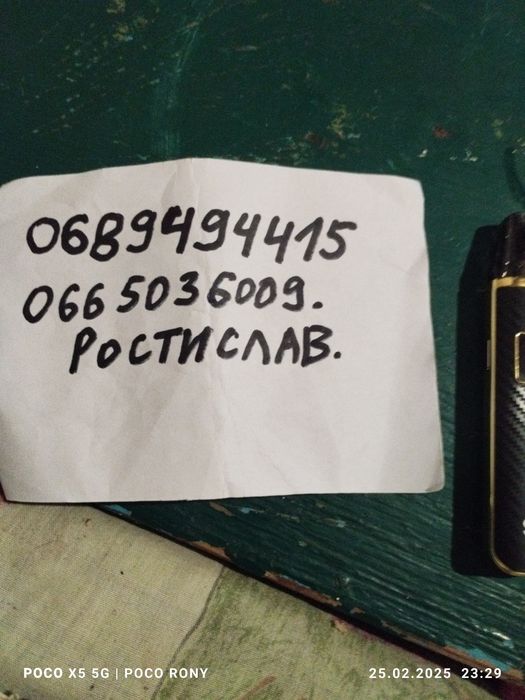 0689494415
0665036009.
РОСТИСЛАВ.
POCO X5 5G | POCO RONY
25.02.2025 23:29